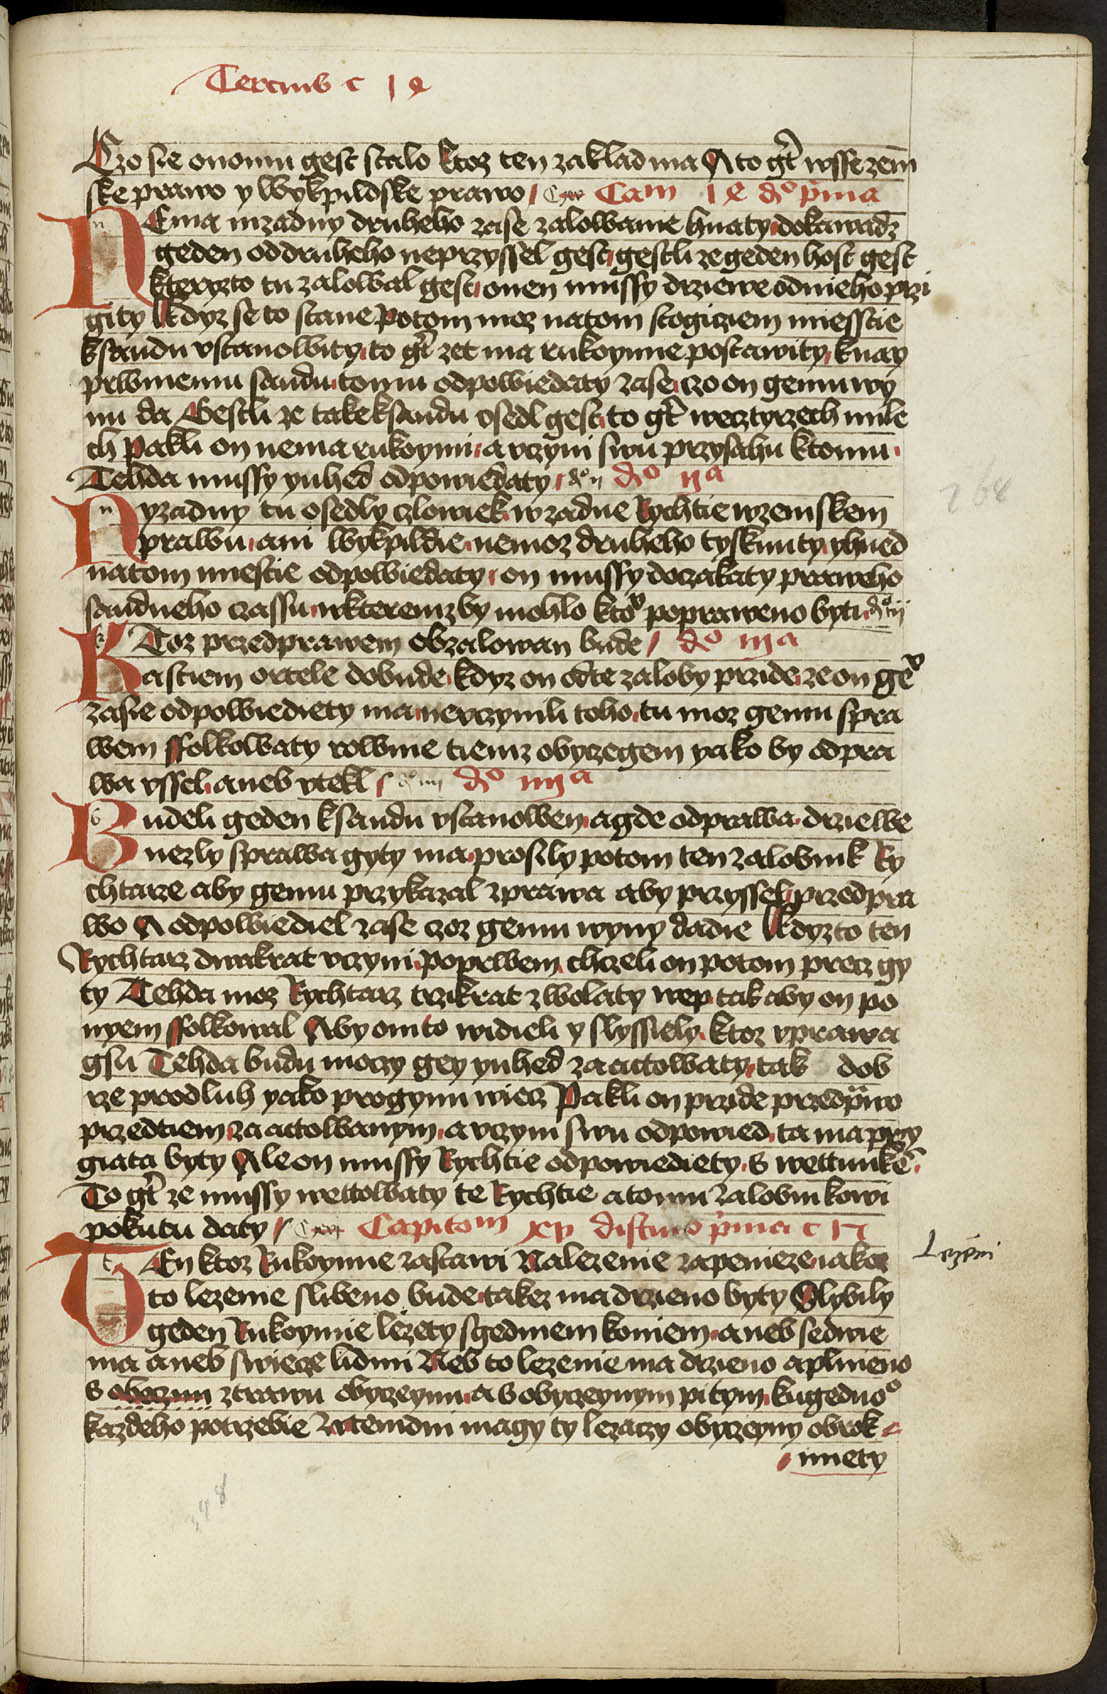 Tercius c
Czo sie onomu gest stalo ktoz ten zaklad ma A to gt wsse zem
ske prawo y wykpildske prawo Cam d° pma
Ema nizadny druheho zase zalowanie hnaty dokawadz
geden od druheho neprzyssel gest gestli ze geden host gest
kteryzto tu zalowal gest onen mussy drziewe od nieho przi
gity kdyz se to stane Potom moz na tom stogiziem miesstie
ksaudu vstanowity to gt zet ma rukoymie postawity knay
prwniemu saudu tomu odpowiedaty zase czo on gemu wy
nu da Gestli ze take ksaudu osedl gest to gt we cztyrzech mile
ch Pakli on nema rukoymi a vczyni swu przysahu ktomu
Tehda mussy ynhed odpowiedaty d° ii d° iia
yzadny tu osedly czlowiek w zadne Rychtie w zemskem
prawu ani wykpildie nemoz druheho tysknuty yhned
na tom miestie odpowiedaty on mussy doczakaty praweho
saudneho czassu w kteremz by mohlo kto popraweno byti d° iii
Toz przed prawem obzalowan bude d° iiia
astiem ortele dobude kdyz on od te zaloby przide ze on ge
zasie odpowiediety ma nevczynili toho tu moz gemu s pra
wem ffolkowaty rowmie tiemz obyczegem yako by od pra
wa vssel aneb vtekl d° iiii d° iiiia
udeli geden ksaudu vstanowen a gde od prawa drziewe
nezly s prawa gyty ma prosyly potom ten zalobnik Ry
chtarze aby gemu przykazal z prawa aby przyssel przed pra
wo A odpowiediel zase czoz gemu wyny dadie kdyz to ten
Rychtarz dwakrat vczyni poprwem chczeli on potom precz gy
ty Tehda moz Rychtarz trzikrat zwolaty wep tak aby on po
nyem ffolkowal Aby oni to widieli y slyssiely ktoz v prawa
gsu Tehda budu moczy gey ynhed zaatto­waty tak dob
rze prodluh yako pro gynu wiecz Pakli on przide przed prawo
przed tiem zaattowanym a vczyni swu odpowied ta ma przy
giata byty Ale on mussy Rychtie odpowiediety s wettunke
To gt ze mussy wettowaty te Rychtie a tomu zalobnikowi
pokutu daty Capitom xv distinco pma c
En ktoz Rukoymie zastawi Na lezenie za penieze iakoz
to lezenie slibeno bude takez ma drzieno byty Slybily
geden Rukoymie lezety s gedniem koniem aneb se dwie
ma aneb s wiecze lidmi Neb to lezenie ma drzieno a plnieno
s oboczim ztrawu obyczeynu a s obyczeynym pitym kugedno
kazdeho potrzebie Zatemdni magy ty lezaczy obyczeyny obrok
miety